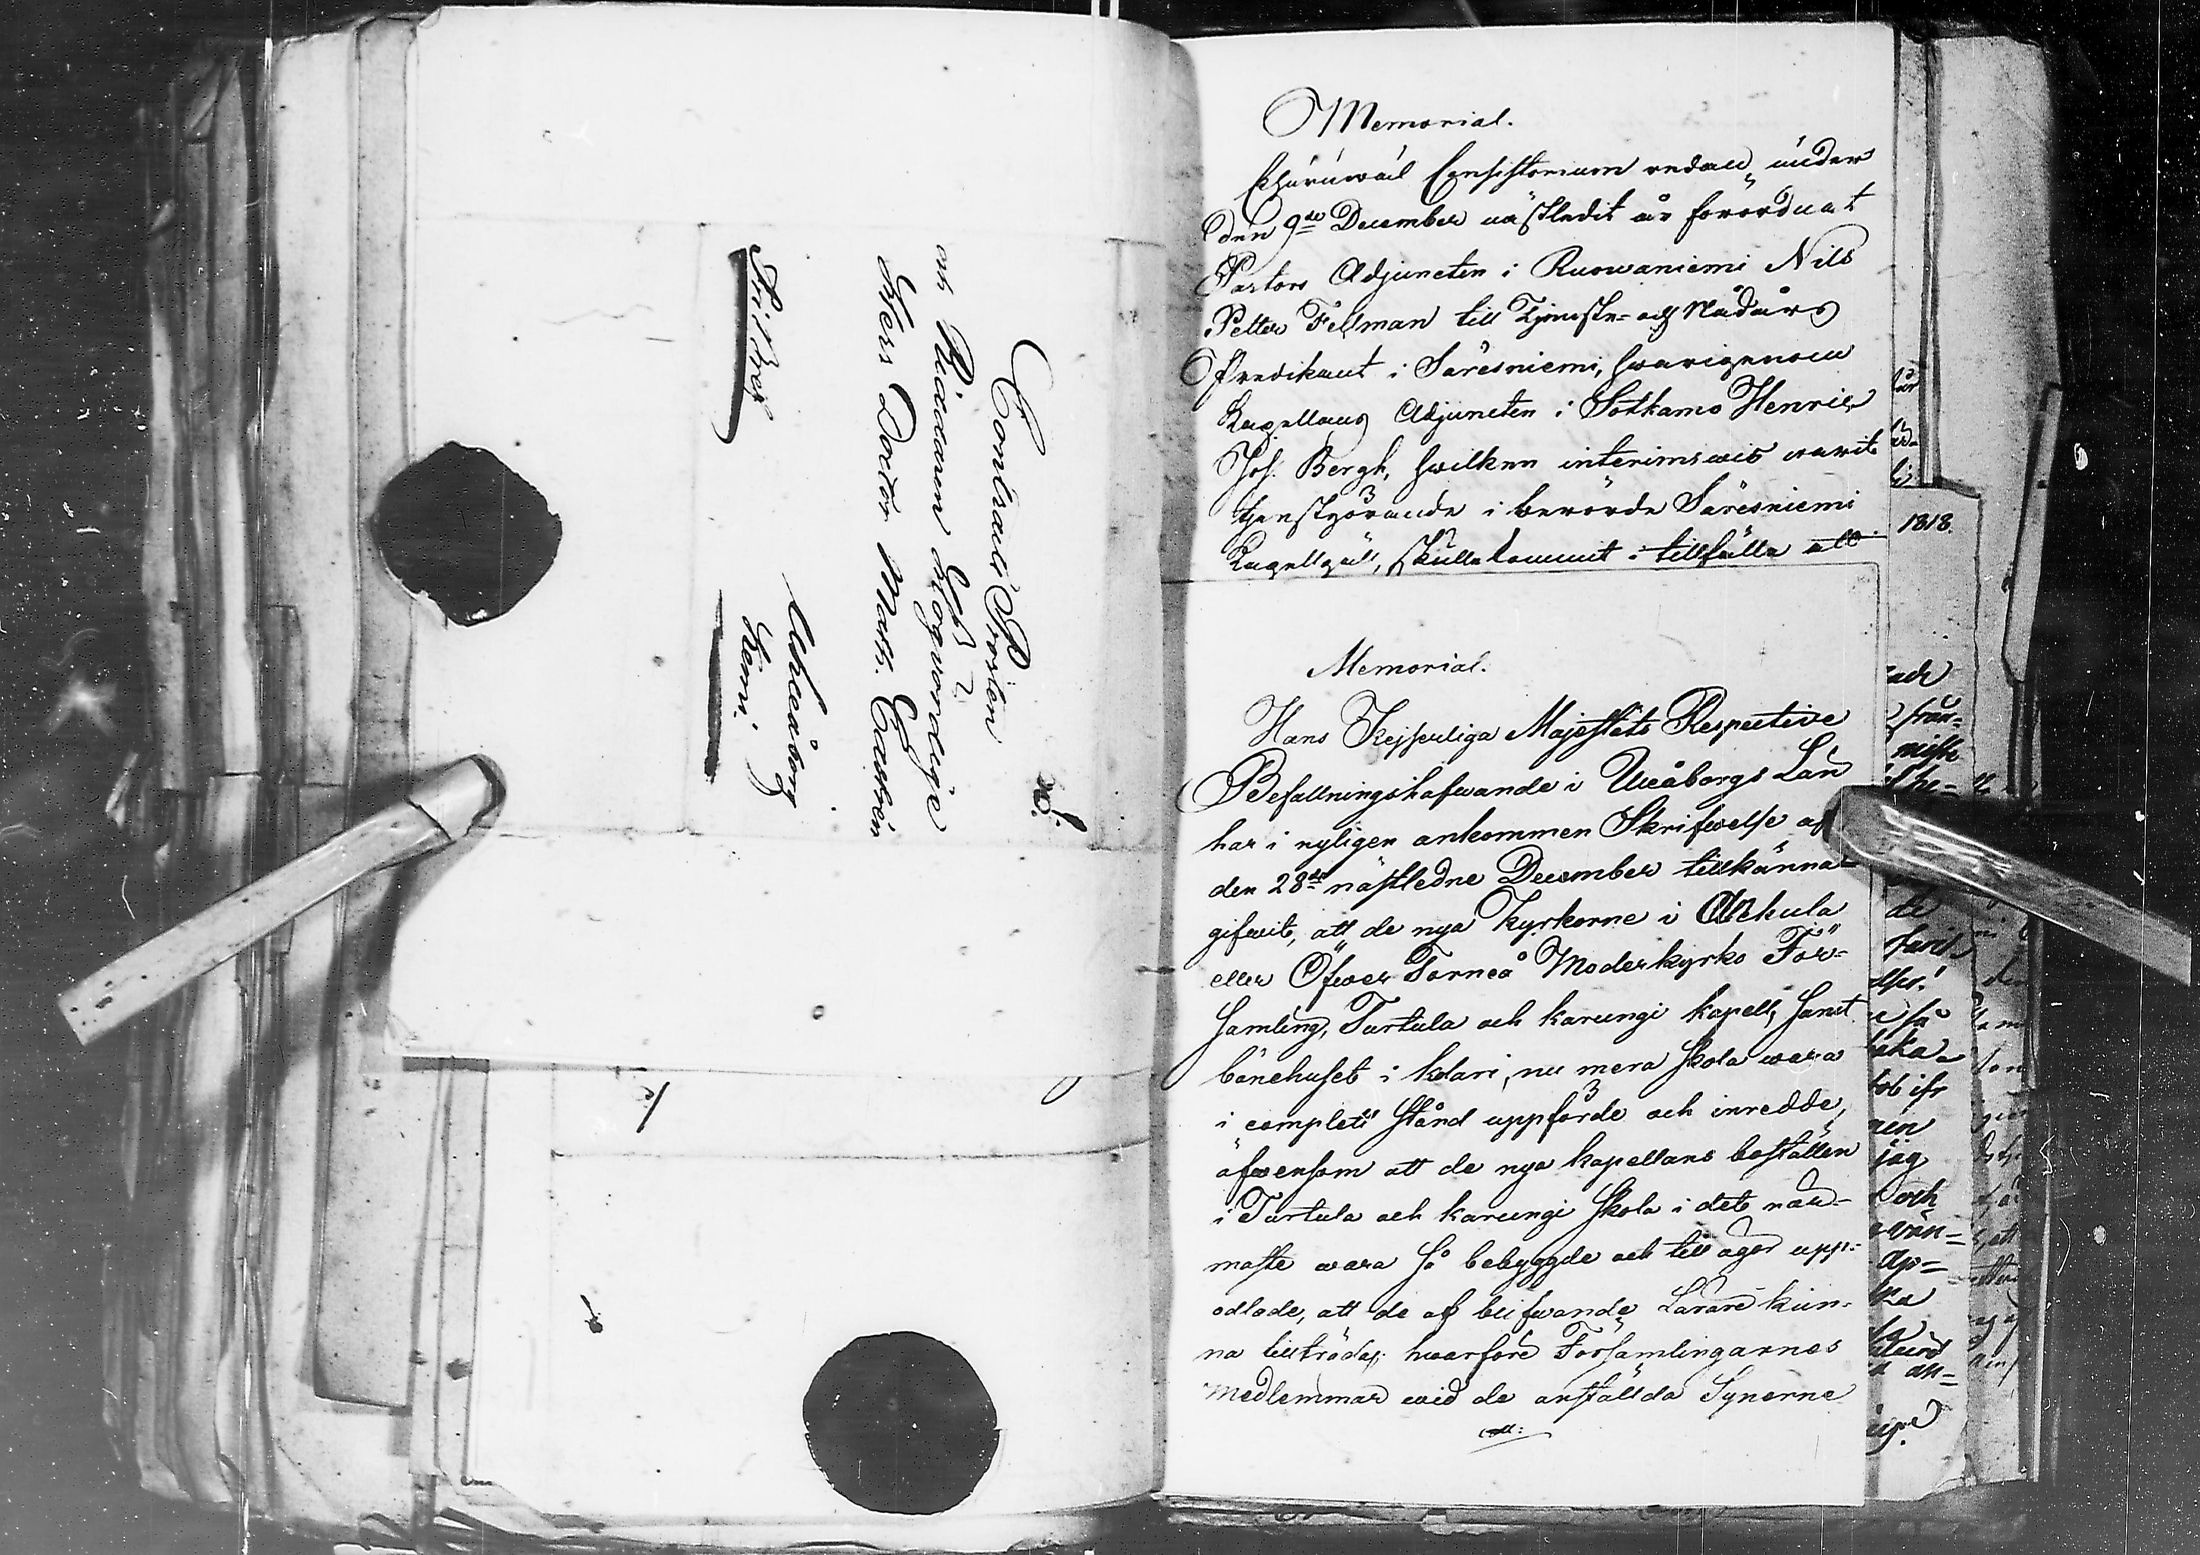 Contracts Prosten
och Riddaren Högvördige
Herr Doctor Math. Castrén
Uleåborg
Kemi.
Fri Bref
Memorial.
Ehuruwäl Consistorium redan under
den 9de December nästledit år förordnat
Pastors Adjuncten i Ruowaniemi Nils
Petter Fellman till Tjenste- och Nådårs
Predikant i Säresniemi, hwarigenom
Kapellans Adjuncten i Sotkamo Henric
Joh. Bergh, hwilken interimswis warit
tjenstgörande i berörde Säresniemi
Kapellgäll, skulle kommit i tillfälle att
1818.
Memorial.
Hans Kejserliga Majestets Respective
Befallningshafwande i Uleåborgs Län
har i nyligen ankommen Skrifwelse af
den 28de nästledne December tillkänna-
gifwit, att de nya Kyrkorne i Alckula
eller Öfwer Torneå Moderkyrko För-
samling, Turtula och Karungi kapell, samt
bönehuset i Kolari, nu mera skola wara
i complett stånd uppförde och inredde,
äfwensom att de nya kapellans boställen
i Turtula och Karungi skola i det när-
maste wara så bebyggde och till åger upp-
odlade, att de af blifwande Lärare kun-
na tillträdas; hwarföre Församlingarnes
medlemmar wid de anställda Synerne